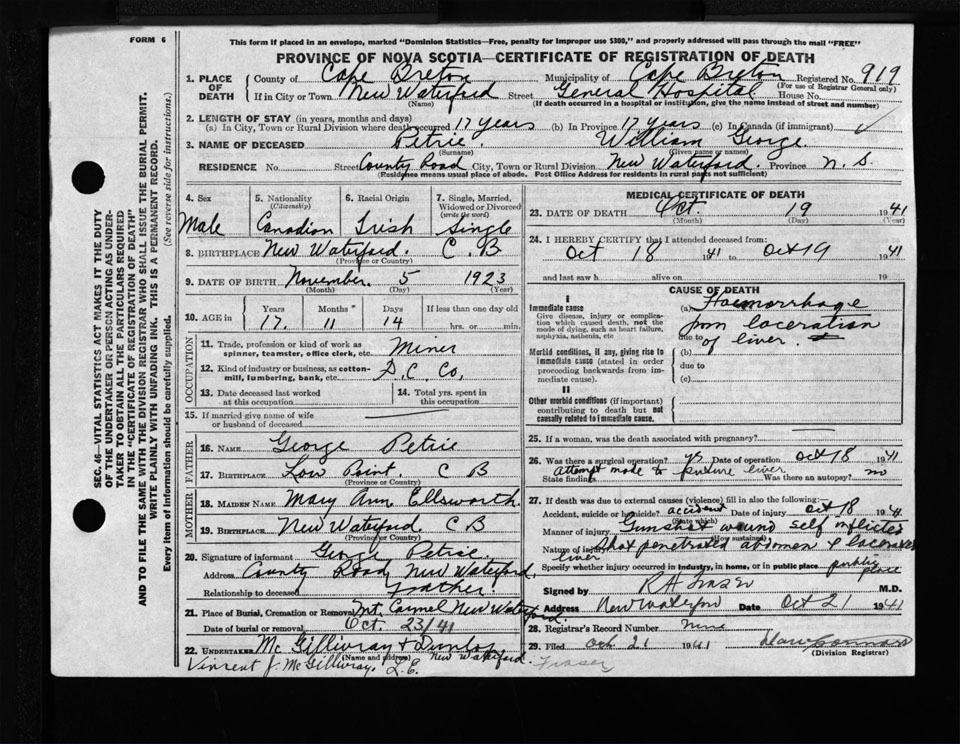 FORM 6
This form if placed in an envelope, marked "Dominion Statistics—Free, penalty for improper use $300," and properly addressed will pass through the mail "FREE"
PROVINCE OF NOVA SCOTIA—CERTIFICATE OF REGISTRATION OF DEATH
SEC. 46—VITAL STATISTICS ACT MAKES IT THE DUTY
OF THE UNDERTAKER OR PERSON ACTING AS UNDER-
TAKER TO OBTAIN ALL THE PARTICULARS REQUIRED
IN THE "CERTIFICATE OF REGISTRATION OF DEATH"
AND TO FILE THE SAME WITH THE DIVISION REGISTRAR WHO SHALL ISSUE THE BURIAL PERMIT.
WRITE PLAINLY WITH UNFADING INK. THIS IS A PERMANENT RECORD.
Every item of information should be carefully supplied. (See reverse side for instructions.)
1. PLACE OF DEATH County of Cape Breton Municipality of Cape Breton Registered No. 919
(For use of Registrar General only)
If in City or Town New Waterford Street General Hospital House No.
(Name) (If death occurred in a hospital or institution, give the name instead of street and number)
2. LENGTH OF STAY (in years, months and days)
(a) In City, Town or Rural Division where death occurred 17 years (b) In Province 17 years (c) In Canada (if immigrant)
3. NAME OF DECEASED Petrie. William George
(Surname) (Given name or names)
RESIDENCE No. Street County Road City, Town or Rural Division New Waterford. Province N. S.
(Residence means usual place of abode. Post Office Address for residents in rural parts not sufficient)
4. Sex 5. Nationality (Citizenship) 6. Racial Origin 7. Single, Married, Widowed or Divorced (write the word)
Male Canadian Irish Single
8. BIRTHPLACE New Waterford. C. B
(Province or Country)
9. DATE OF BIRTH November. 5 1923
(Month) (Day) (Year)
10. AGE in Years Months Days If less than one day old
17. 11 14 hrs. or min.
OCCUPATION
11. Trade, profession or kind of work as spinner, teamster, office clerk, etc. Miner
12. Kind of industry or business, as cotton-mill, lumbering, bank, etc. D. C. Co,
13. Date deceased last worked at this occupation 14. Total yrs. spent in this occupation
15. If married give name of wife or husband of deceased
FATHER
16. NAME George Petrie
17. BIRTHPLACE Low Point. C B
(Province or Country)
MOTHER
18. MAIDEN NAME Mary Ann Ellsworth.
19. BIRTHPLACE New Waterford. C B
(Province or Country)
20. Signature of informant George Petrie.
Address County Road, New Waterford,
Relationship to deceased Father.
21. Place of Burial, Cremation or Removal Mt. Carmel New Waterford.
Date of burial or removal Oct. 23/41
22. UNDERTAKER Mc Gillivray & Dunlop
(Name and address) New Waterford.
Vincent J. McGillivray. L.E.
MEDICAL CERTIFICATE OF DEATH
23. DATE OF DEATH Oct. 19 1941
(Month) (Day) (Year)
24. I HEREBY CERTIFY that I attended deceased from:
Oct 18 1941 to Oct 19 1941
and last saw h alive on 19
CAUSE OF DEATH
I
Immediate cause
Give disease, injury or complication which caused death, not the mode of dying, such as heart failure, asphyxia, asthenia, etc
(a) Haemorrhage
from laceration
due to
of liver.
Morbid conditions, if any, giving rise to immediate cause (stated in order proceeding backwards from immediate cause).
(b)
due to
(c)
II
Other morbid conditions (if important) contributing to death but not causally related to immediate cause.
25. If a woman, was the death associated with pregnancy?
26. Was there a surgical operation? yes Date of operation Oct 18 1941
State findings attempt made to suture liver Was there an autopsy? no
27. If death was due to external causes (violence) fill in also the following:—
Accident, suicide or homicide? accident Date of injury Oct 18 194
(State which)
Manner of injury Gunshot wound self inflicted
(How sustained)
Nature of injury Shot penetrated abdomen & lacerated
liver
Specify whether injury occurred in industry, in home, or in public place public place
Signed by R A Fraser M.D.
Address New Waterford Date Oct 21 1941
28. Registrar's Record Number nine
29. Filed Oct 21 1941
(Division Registrar)
Fraser